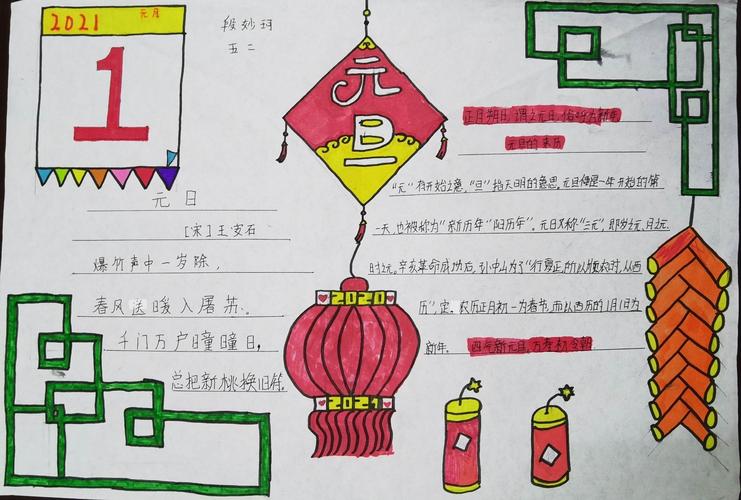 2021 元月
1
段妙珂
五二
元旦
2020
2021
元日
[宋]王安石
爆竹声中一岁除,
春风送暖入屠苏。
千门万户曈曈日,
总把新桃换旧符。
正月朔日,谓之元旦,俗呼为新年
元旦的来历
"元"有开始之意,"旦"指天明的意思。元旦便是一年开始的第
一天,也被称为"新历年"阳历年"。元日又称"三元",即岁之元、月之元、
时之元。辛亥革命成功后,孙中山为了"行夏正,所以顺农时,从西
历",定 农历正月初一为春节,而以西历的1月1日为
新年。 四气新元旦,万寿初今朝